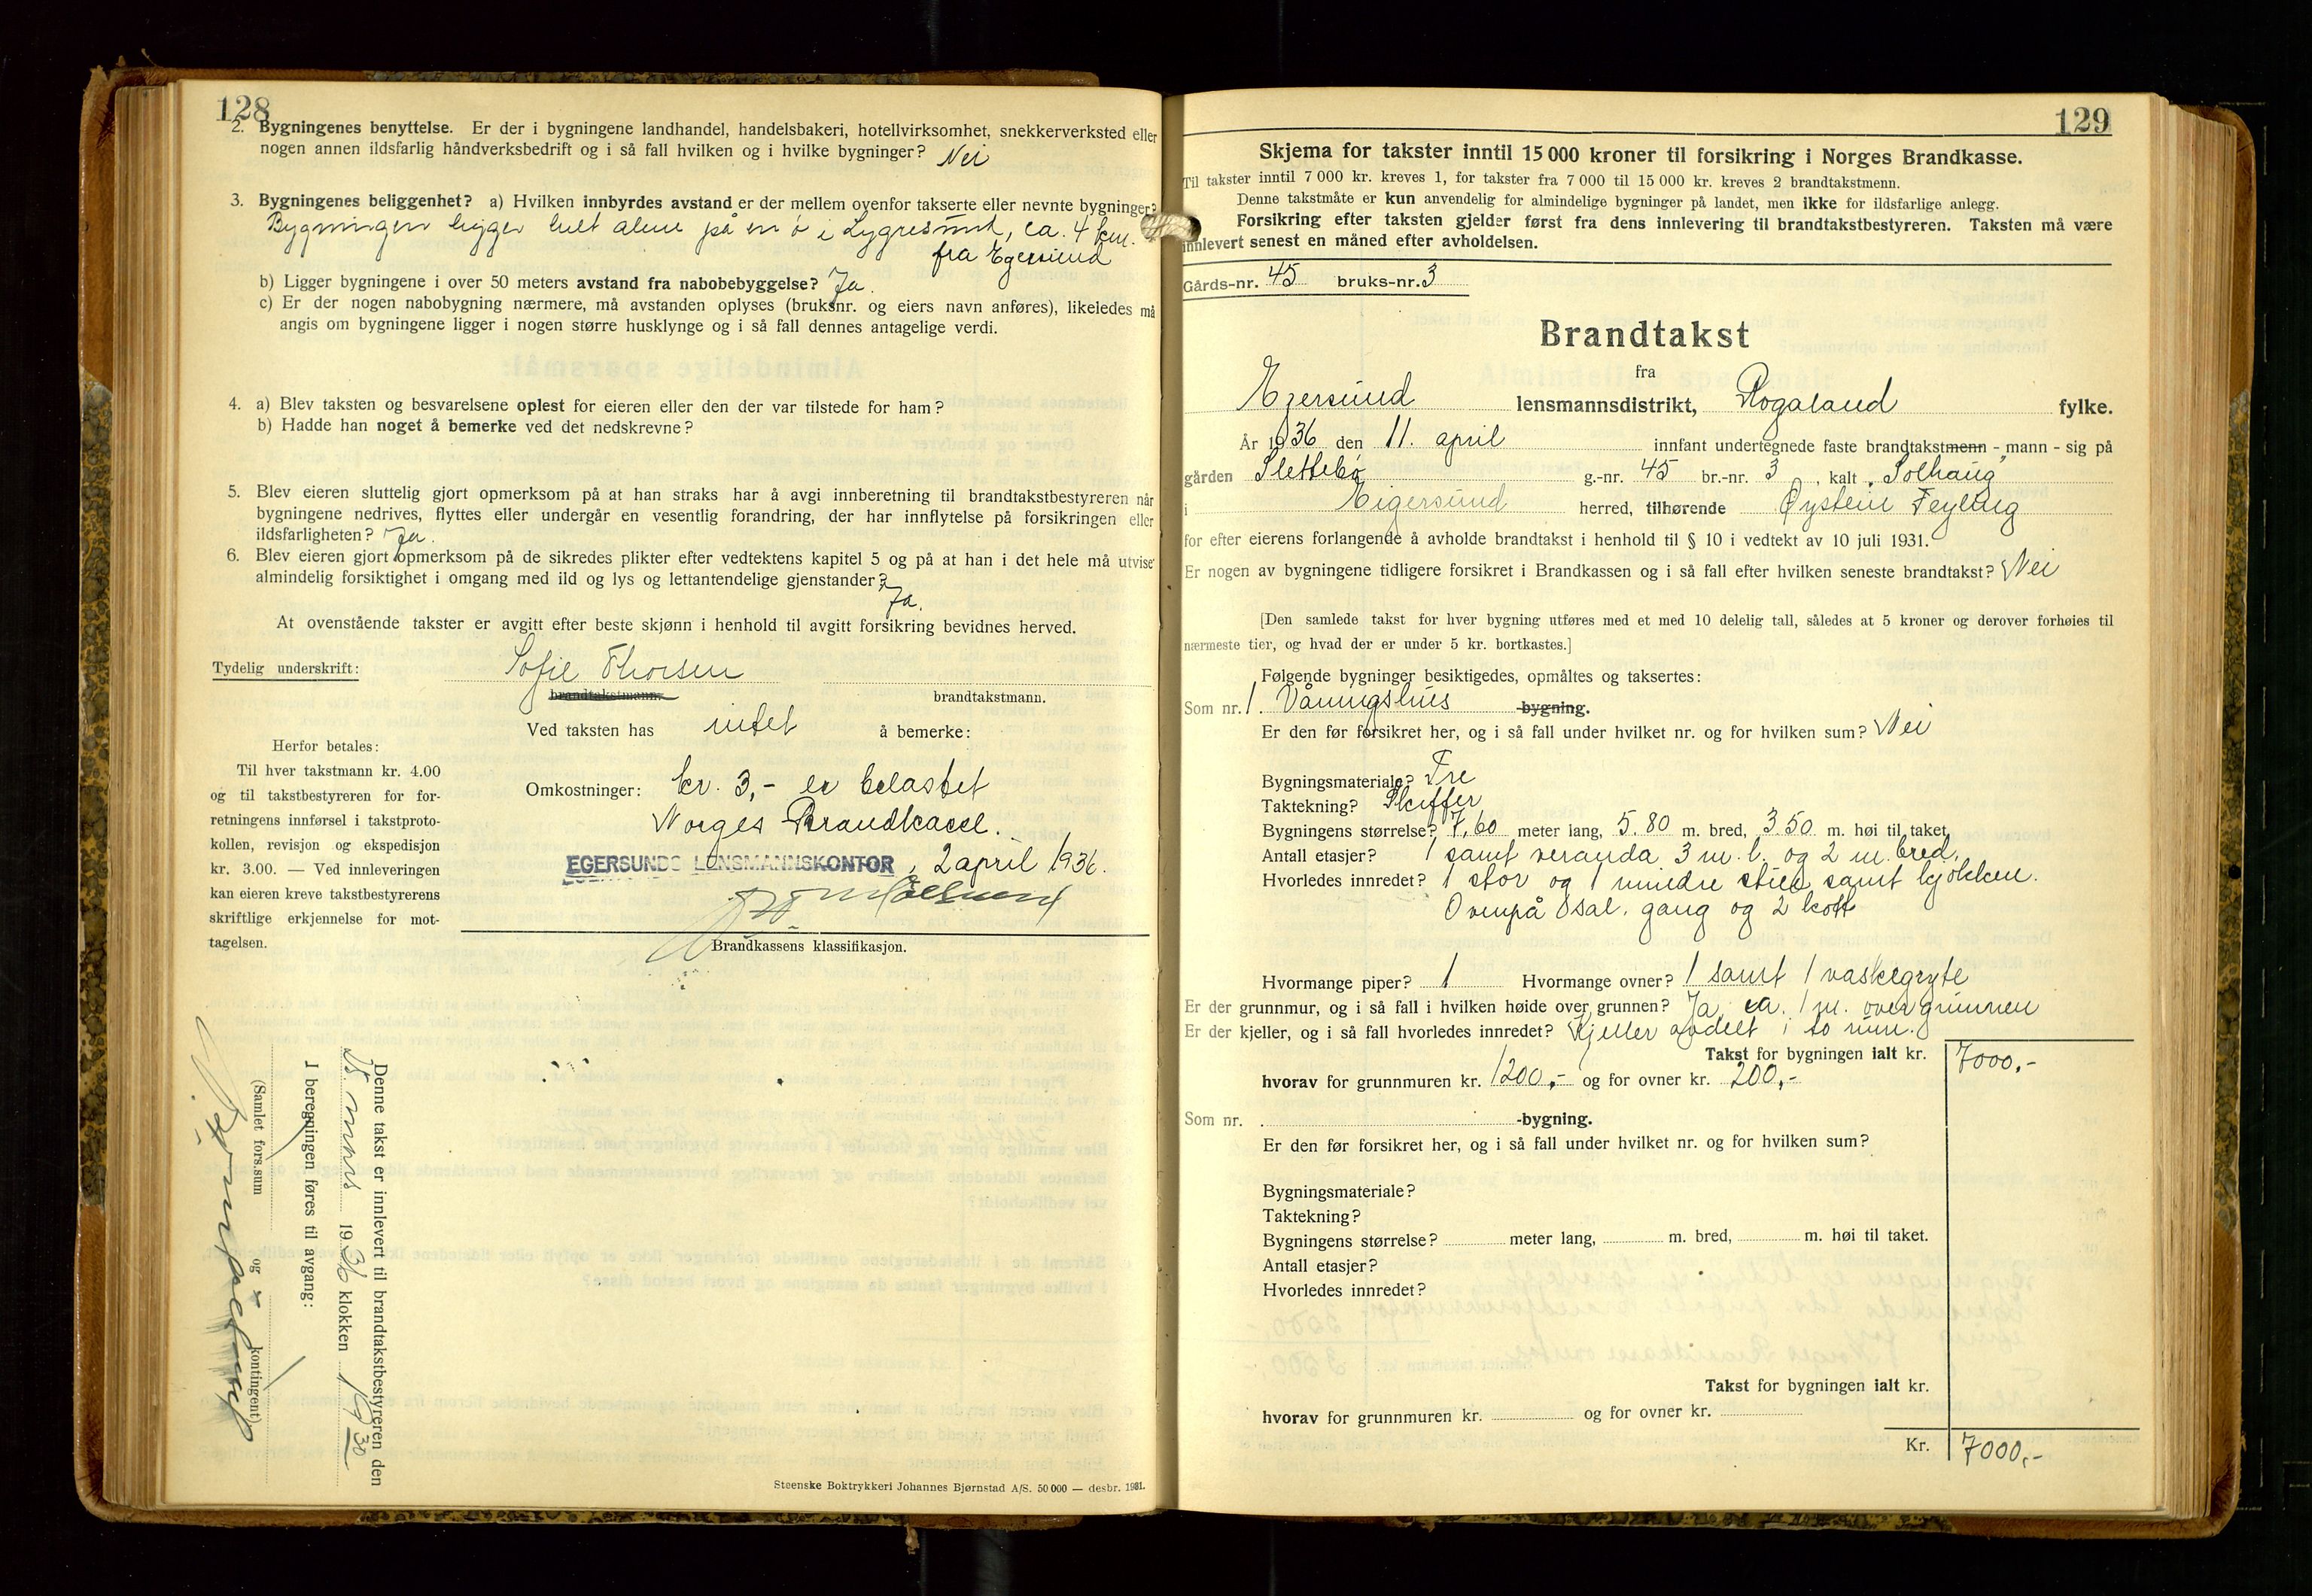 128
2. Bygningenes benyttelse. Er der i bygningene landhandel, handelsbakeri, hotellvirksomhet, snekkerverksted eller
nogen annen ildsfarlig håndverksbedrift og i så fall hvilken og i hvilke bygninger? Nei
3. Bygningenes beliggenhet? a) Hvilken innbyrdes avstand er der mellem ovenfor takserte eller nevnte bygninger?
Bygningen ligger helt alene på en ø i Lygresund, ca. 4 km.
fra Egersund
b) Ligger bygningene i over 50 meters avstand fra nabobebyggelse? Ja.
c) Er der nogen nabobygning nærmere, må avstanden oplyses (bruksnr. og eiers navn anføres), likeledes må
angis om bygningene ligger i nogen større husklynge og i så fall dennes antagelige verdi.
4. a) Blev taksten og besvarelsene oplest for eieren eller den der var tilstede for ham?
b) Hadde han noget å bemerke ved det nedskrevne?
5. Blev eieren sluttelig gjort opmerksom på at han straks har å avgi innberetning til brandtakstbestyreren når
bygningene nedrives, flyttes eller undergår en vesentlig forandring, der har innflytelse på forsikringen eller
ildsfarligheten? Ja.
6. Blev eieren gjort opmerksom på de sikredes plikter efter vedtektens kapitel 5 og på at han i det hele må utvise
almindelig forsiktighet i omgang med ild og lys og lettantendelige gjenstander?
Ja.
At ovenstående takster er avgitt efter beste skjønn i henhold til avgitt forsikring bevidnes herved.
Tydelig underskrift: Sofie Thorsen
brandtakstmann. brandtakstmann.
Ved taksten has intet å bemerke:
Herfor betales:
Til hver takstmann kr. 4.00
og til takstbestyreren for for-
retningens innførsel i takstproto-
kollen, revisjon og ekspedisjon
kr. 3.00. — Ved innleveringen
kan eieren kreve takstbestyrerens
skriftlige erkjennelse for mot-
tagelsen.
Omkostninger: kr. 3,- er belastet
Norges Brandkasse.
EGERSUNDS LENSMANNSKONTOR, 2 april 1936.
Brandkassens klassifikasjon.
Denne takst er innlevert til brandtakstbestyreren den
mars 1936 klokken 19 30
I beregningen føres til avgang:
(Samlet fors.sum og kontingent)
Steenske Boktrykkeri Johannes Bjørnstad A/S. 50 000 — desbr. 1931.
129
Skjema for takster inntil 15 000 kroner til forsikring i Norges Brandkasse.
Til takster inntil 7 000 kr. kreves 1, for takster fra 7 000 til 15 000 kr. kreves 2 brandtakstmenn.
Denne takstmåte er kun anvendelig for almindelige bygninger på landet, men ikke for ildsfarlige anlegg.
Forsikring efter taksten gjelder først fra dens innlevering til brandtakstbestyreren. Taksten må være
innlevert senest en måned efter avholdelsen.
Gårds-nr. 45 bruks-nr. 3
Brandtakst
fra
Egersund lensmannsdistrikt, Rogaland fylke.
År 1936 den 11. april innfant undertegnede faste brandtakstmenn - mann - sig på
gården Slettebø g.-nr. 45 br.-nr. 3, kalt "Solhaug"
i Eigersund herred, tilhørende Øystein Feyling
for efter eierens forlangende å avholde brandtakst i henhold til § 10 i vedtekt av 10 juli 1931.
Er nogen av bygningene tidligere forsikret i Brandkassen og i så fall efter hvilken seneste brandtakst? Nei
[Den samlede takst for hver bygning utføres med et med 10 delelig tall, således at 5 kroner og derover forhøies til
nærmeste tier, og hvad der er under 5 kr. bortkastes.]
Følgende bygninger besiktigedes, opmåltes og taksertes:
Som nr. 1. Våningshus -bygning.
Er den før forsikret her, og i så fall under hvilket nr. og for hvilken sum? Nei
Bygningsmateriale? Tre
Taktekning? Skiffer
Bygningens størrelse? 7,60 meter lang, 5.80 m. bred, 3.50 m. høi til taket.
Antall etasjer? 1 samt veranda 3 m. l. og 2 m. bred.
Hvorledes innredet? 1 stor og 1 mindre stue samt kjøkken.
Ovenpå sal. gang og 2 kott
Hvormange piper? 1 Hvormange ovner? 1 samt 1 vaskegryte
Er der grunnmur, og i så fall i hvilken høide over grunnen? Ja ca. 1 m. over grunnen
Er der kjeller, og i så fall hvorledes innredet? Kjeller avdelt i to rum.
Takst for bygningen ialt kr. 7000,-
hvorav for grunnmuren kr. 1200,- og for ovner kr. 200,-
Som nr. -bygning.
Er den før forsikret her, og i så fall under hvilket nr. og for hvilken sum?
Bygningsmateriale?
Taktekning?
Bygningens størrelse? meter lang, m. bred, m. høi til taket.
Antall etasjer?
Hvorledes innredet?
Takst for bygningen ialt kr.
hvorav for grunnmuren kr. og for ovner kr.
Kr. 7000,-